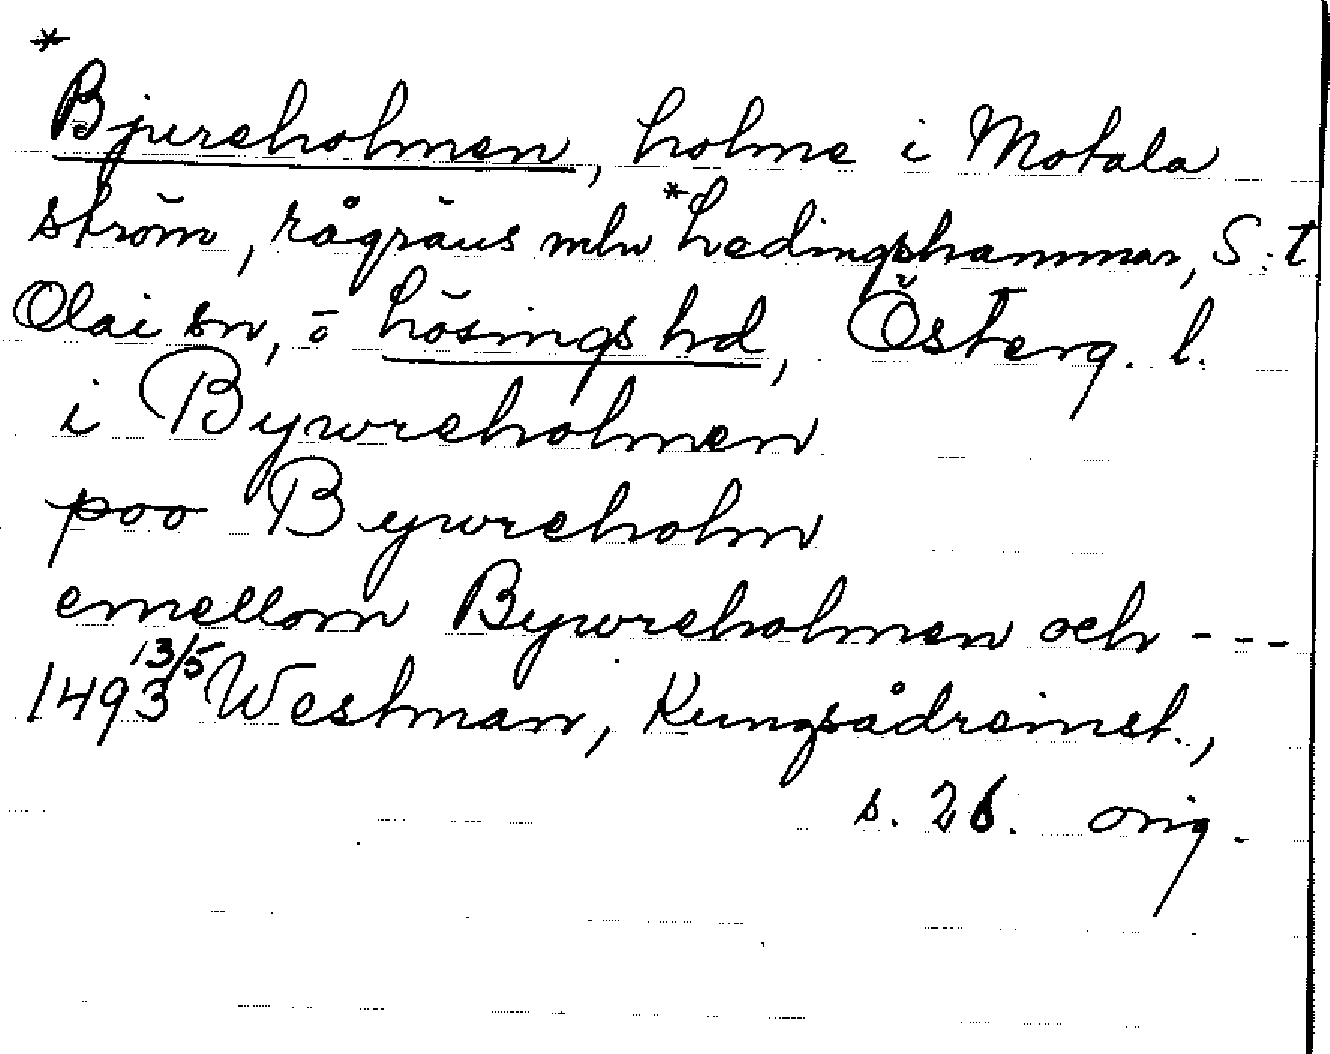 *
Bjureholmen, holme i Motala
ström, rågräns mln *Hedingshammar, S:t
Olai sn, ö Lösings hd, Österg. l.
i Bywreholmen
poo Bywreholm
emellom Bywreholmen och ---
1493 13/5 Westman, Kungsådreinst.,
s. 26. orig.